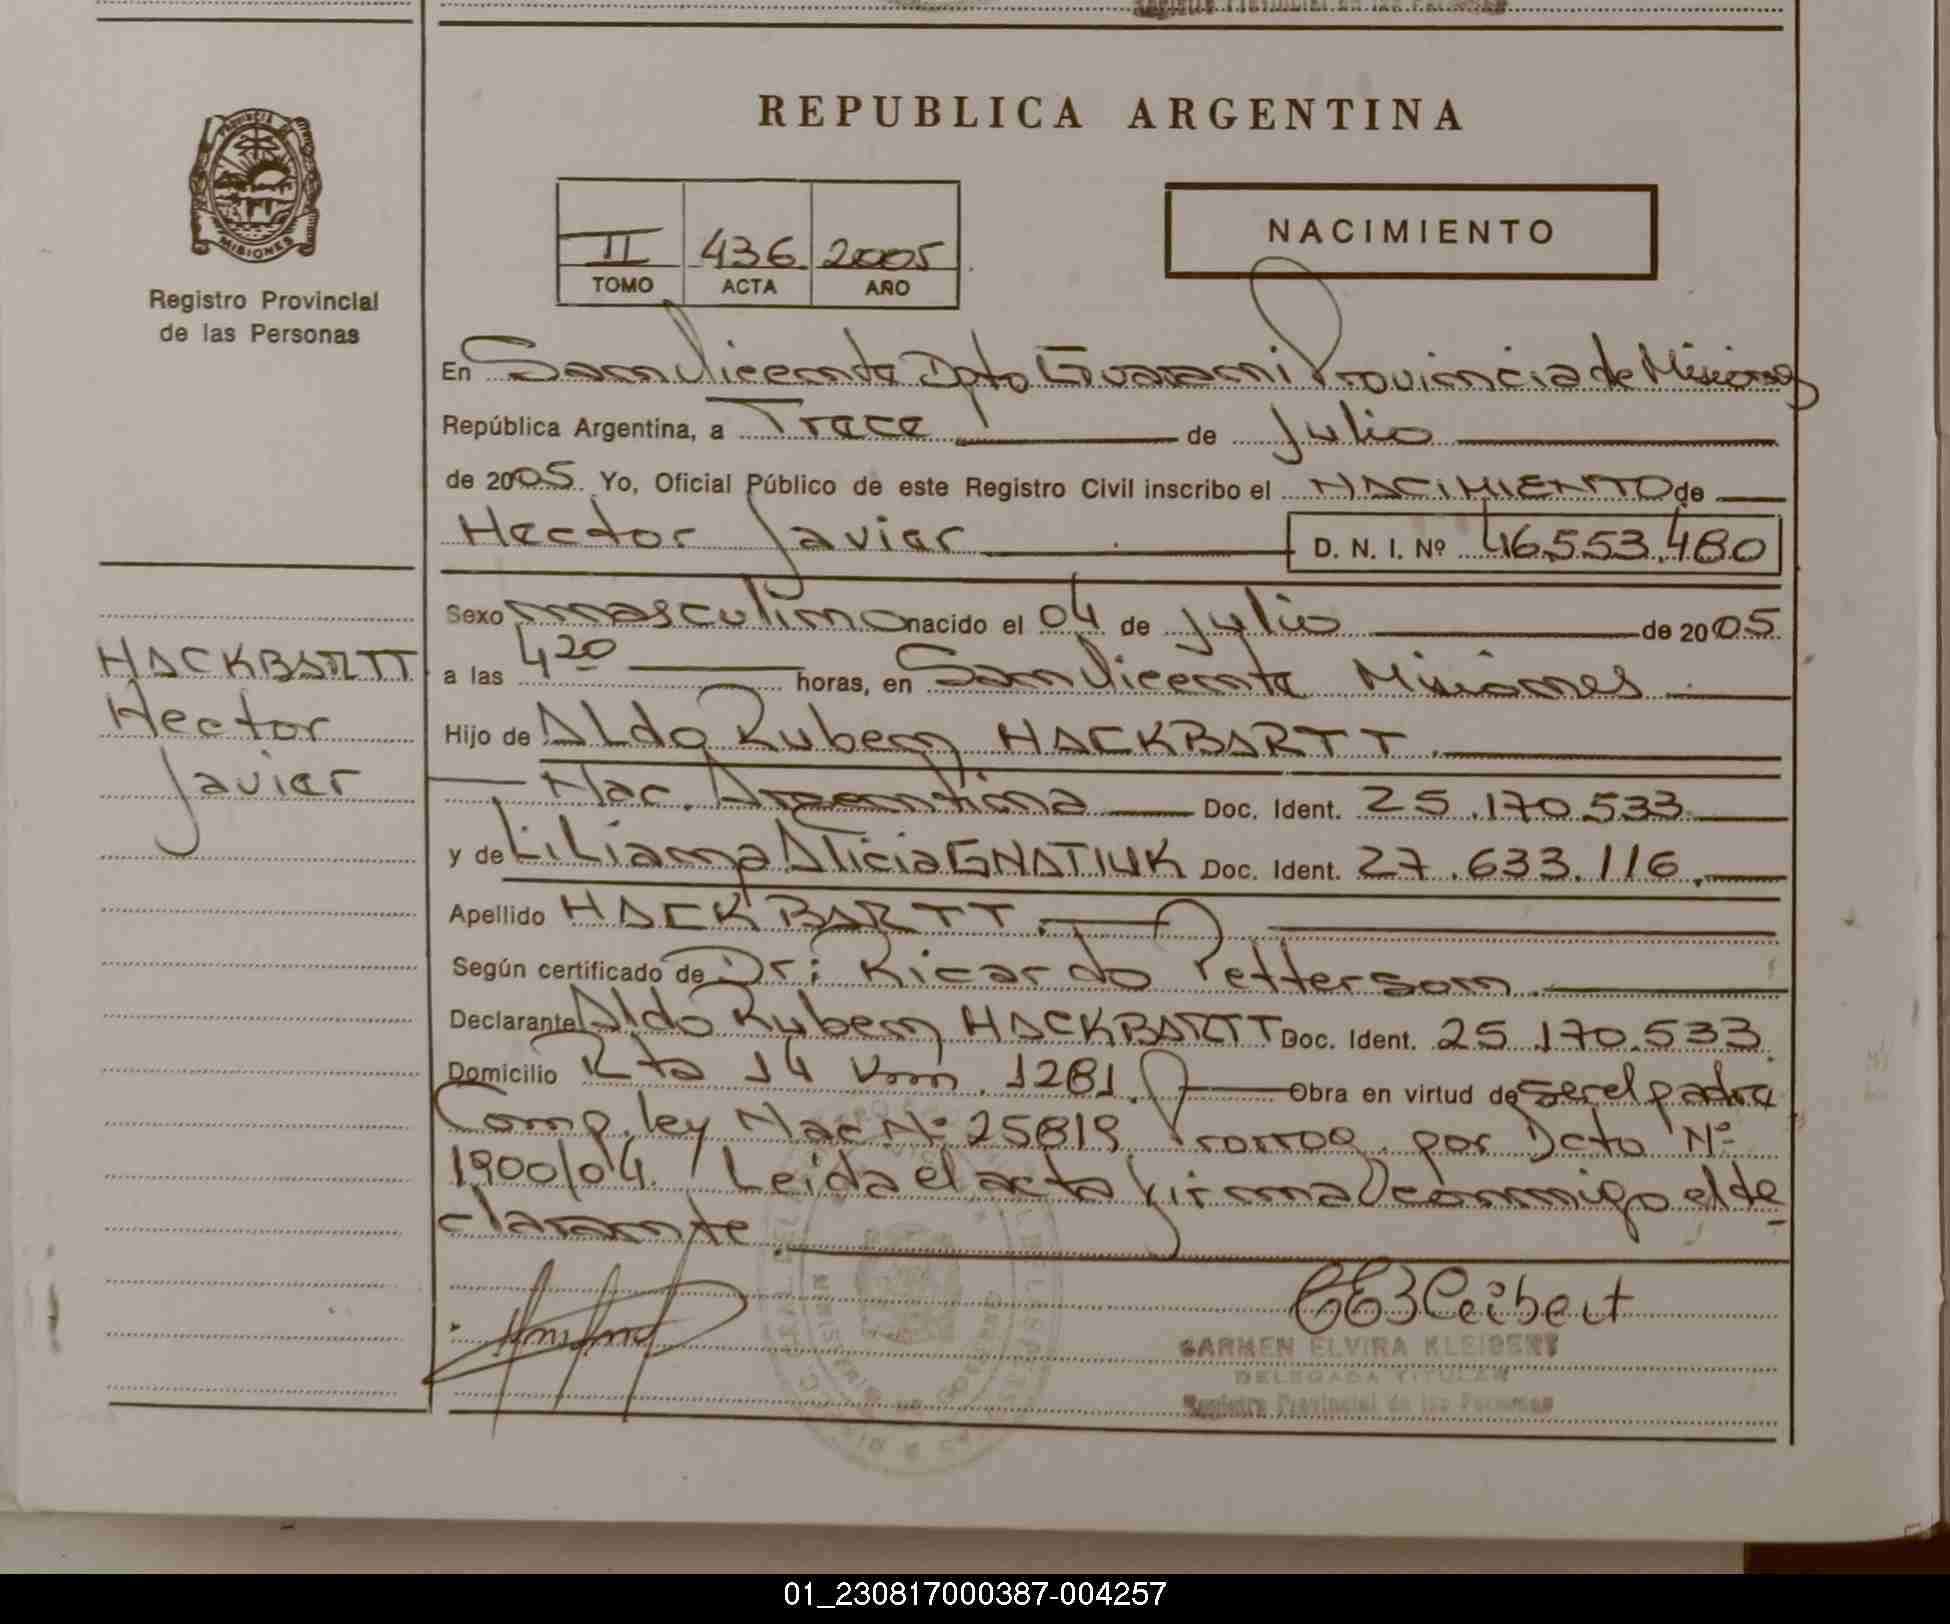 Registro Provincial de las Personas
REPUBLICA ARGENTINA
PROVINCIA DE
MISIONES
Registro Provincial
de las Personas
II 436 2005
TOMO ACTA AÑO
NACIMIENTO
En San Vicente Dpto Guarani Provincia de Misiones
República Argentina, a Trece de Julio
de 2005. Yo, Oficial Público de este Registro Civil inscribo el NACIMIENTO de
Hector Javier D. N. I. Nº 46.553.480
Sexo masculino nacido el 04 de Julio de 2005.
a las 4 20 horas, en San Vicente Misiones
Hijo de Aldo Ruben HACKBARTT.
Nac. Argentina Doc. Ident. 25.170.533.
y de Liliana Alicia GNATIUK Doc. Ident. 27.633.116.
Apellido HACKBARTT.
Según certificado de Dr: Ricardo Petterson.
Declarante Aldo Ruben HACKBARTT Doc. Ident. 25.170.533.
Domicilio Rta 14 Km. 1281. Obra en virtud de ser el padre
Comp. ley Nac Nº 25819 Prorrog. por Dcto Nº
1900/04. Leida el acta firma conmigo el de
clarante.
HACKBARTT
Hector
Javier
CARMEN ELVIRA KLEIBERT
DELEGADA TITULAR
Registro Provincial de las Personas
01_230817000387-004257